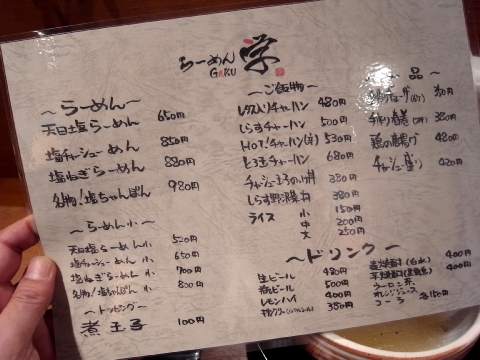 らーめん 学
GAKU
〜らーめん〜
天日塩らーめん 650円
塩チャーシューめん 850円
塩ねぎらーめん 880円
名物!塩ちゃんぽん 980円
〜らーめん小〜
天日塩らーめん 小 520円
塩チャーシューめん 小 650円
塩ねぎらーめん 小 700円
名物!塩ちゃんぽん 小 800円
〜トッピング〜
煮玉子 100円
〜ご飯物〜
レタス入りチャーハン 480円
しらすチャーハン 500円
HOT!チャーハン(辛) 530円
とろ玉チャーハン 680円
チャーシューまろのっけ丼 380円
しらす野沢菜丼 380円
ライス 小 150円
中 200円
大 250円
一品〜
380円
手作り春巻 380円
鶏の唐揚げ 480円
チャーシュー盛り 420円
〜ドリンク〜
生ビール 480円
瓶ビール 500円
レモンハイ 400円
380円
麦焼酎 400円
芋焼酎 400円
ウーロン茶
オレンジジュース
コーラ 各150円